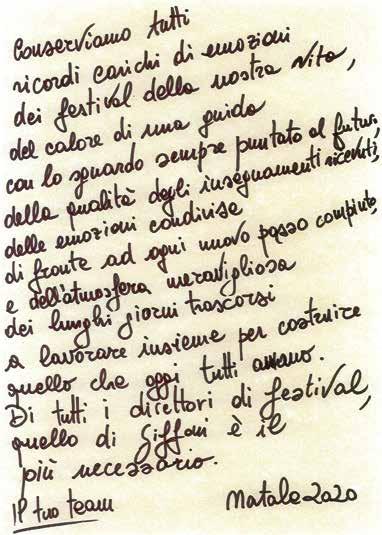 Conserviamo tutti
ricordi carichi di emozioni
dei festival della nostra vita,
del calore di una guida
con lo sguardo sempre puntato al futuro,
della qualità degli insegnamenti ricevuti,
delle emozioni condivise
di fronte ad ogni nuovo passo compiuto,
e dell'atmosfera meravigliosa
dei lunghi giorni trascorsi
a lavorare insieme per costruire
quello che oggi tutti amano.
Di tutti i direttori di festival,
quello di Giffoni è il
più necessario.
Il tuo team
Natale 2020